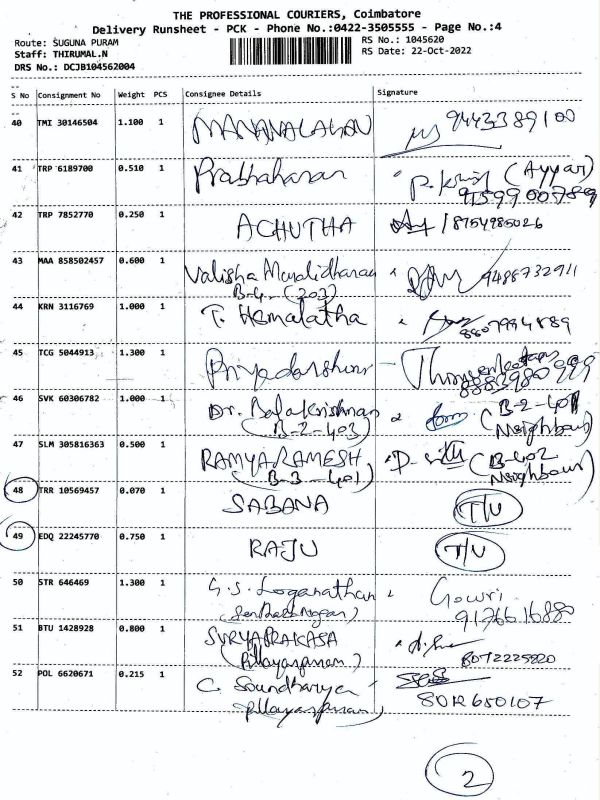 THE PROFESSIONAL COURIERS, Coimbatore
Delivery Runsheet - PCK - Phone No.:0422-3505555 - Page No.:4
Route: SUGUNA PURAM
RS No.: 1045620
Staff: THIRUMAL.N
RS Date: 22-Oct-2022
DRS No.: DCJB104562004
S No Consignment No Weight PCS Consignee Details Signature
40 TMI 30146504 1.100 1 MANAVALAGAN 9443389100
41 TRP 6189700 0.510 1 Prabhaharan (Ayyar)
9159900789
42 TRP 7852770 0.250 1 ACHUTHA 8754985026
43 MAA 858502457 0.600 1 Valisha Muralidharan 9488732911
B-4- (203)
44 KRN 3116769 1.000 1 T. Hemalatha
8807994889
45 TCG 5044913 1.300 1 Priyadarshini
8883980999
46 SVK 60306782 1.000 1 Dr. Balakrishnan (B-2-401
(B-2-403) Neighbour)
47 SLM 305816363 0.500 1 RAMYA RAMESH (B-402
(B-3-401) Neighbour)
48 TRR 10569457 0.070 1 SABANA T/U
49 EDQ 22245770 0.750 1 RAJU T/U
50 STR 646469 1.300 1 G.S. Loganathan Gowri
9176616880
51 BTU 1428928 0.800 1 SURYAPRAKASA
(Pillayarpuram) 8072225820
52 POL 6620671 0.215 1 C. Soundharya
Pillayarpuram) 8012650107
2